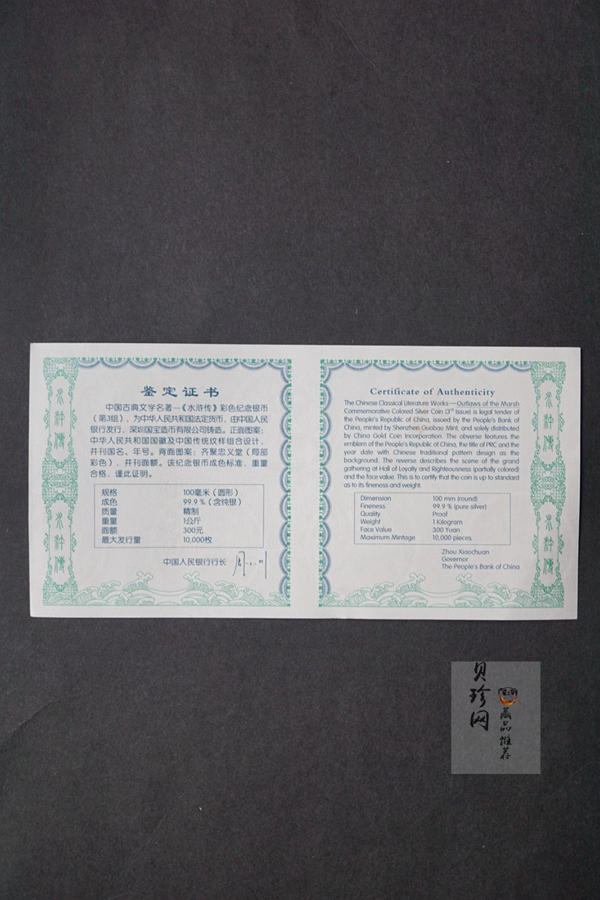 鉴定证书
中国古典文学名著—《水浒传》彩色纪念银币
(第3组),为中华人民共和国法定货币,由中国人民
银行发行,深圳国宝造币有限公司铸造。正面图案:
中华人民共和国国徽及中国传统纹样组合设计,
并刊国名、年号。背面图案:齐聚忠义堂(局部
彩色),并刊面额。该纪念银币成色标准,重量
合格,谨此证明。
规格 100毫米(圆形)
成色 99.9%(含纯银)
质量 精制
重量 1公斤
面额 300元
最大发行量 10,000枚
中国人民银行行长
Certificate of Authenticity
The Chinese Classical Literature Works—Outlaws of the Marsh
Commemorative Colored Silver Coin (3rd Issue) is legal tender of
the People's Republic of China, issued by the People's Bank of
China, minted by Shenzhen Guobao Mint, and solely distributed
by China Gold Coin Incorporation. The obverse features the
emblem of the People's Republic of China, the title of PRC and the
year date with Chinese traditional pattern design as the
background. The reverse describes the scene of the grand
gathering at Hall of Loyalty and Righteousness (partially colored)
and the face value. This is to certify that the coin is up to standard
as to its fineness and weight.
Dimension 100 mm (round)
Fineness 99.9 % (pure silver)
Quality Proof
Weight 1 Kilogram
Face Value 300 Yuan
Maximum Mintage 10,000 pieces
Zhou Xiaochuan
Governor
The People's Bank of China
水浒传
水浒传
水浒传
水浒传
贝珍网
藏品推荐